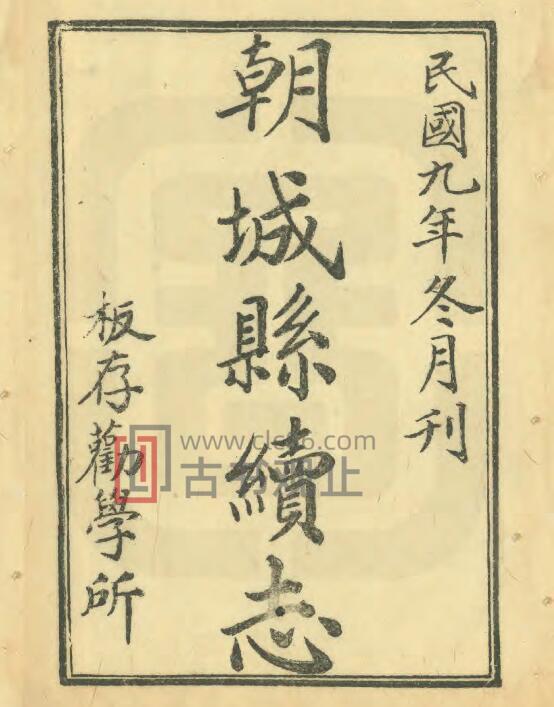 民國九年冬月刊
朝城縣續志
板存勸學所
www.cls66.com